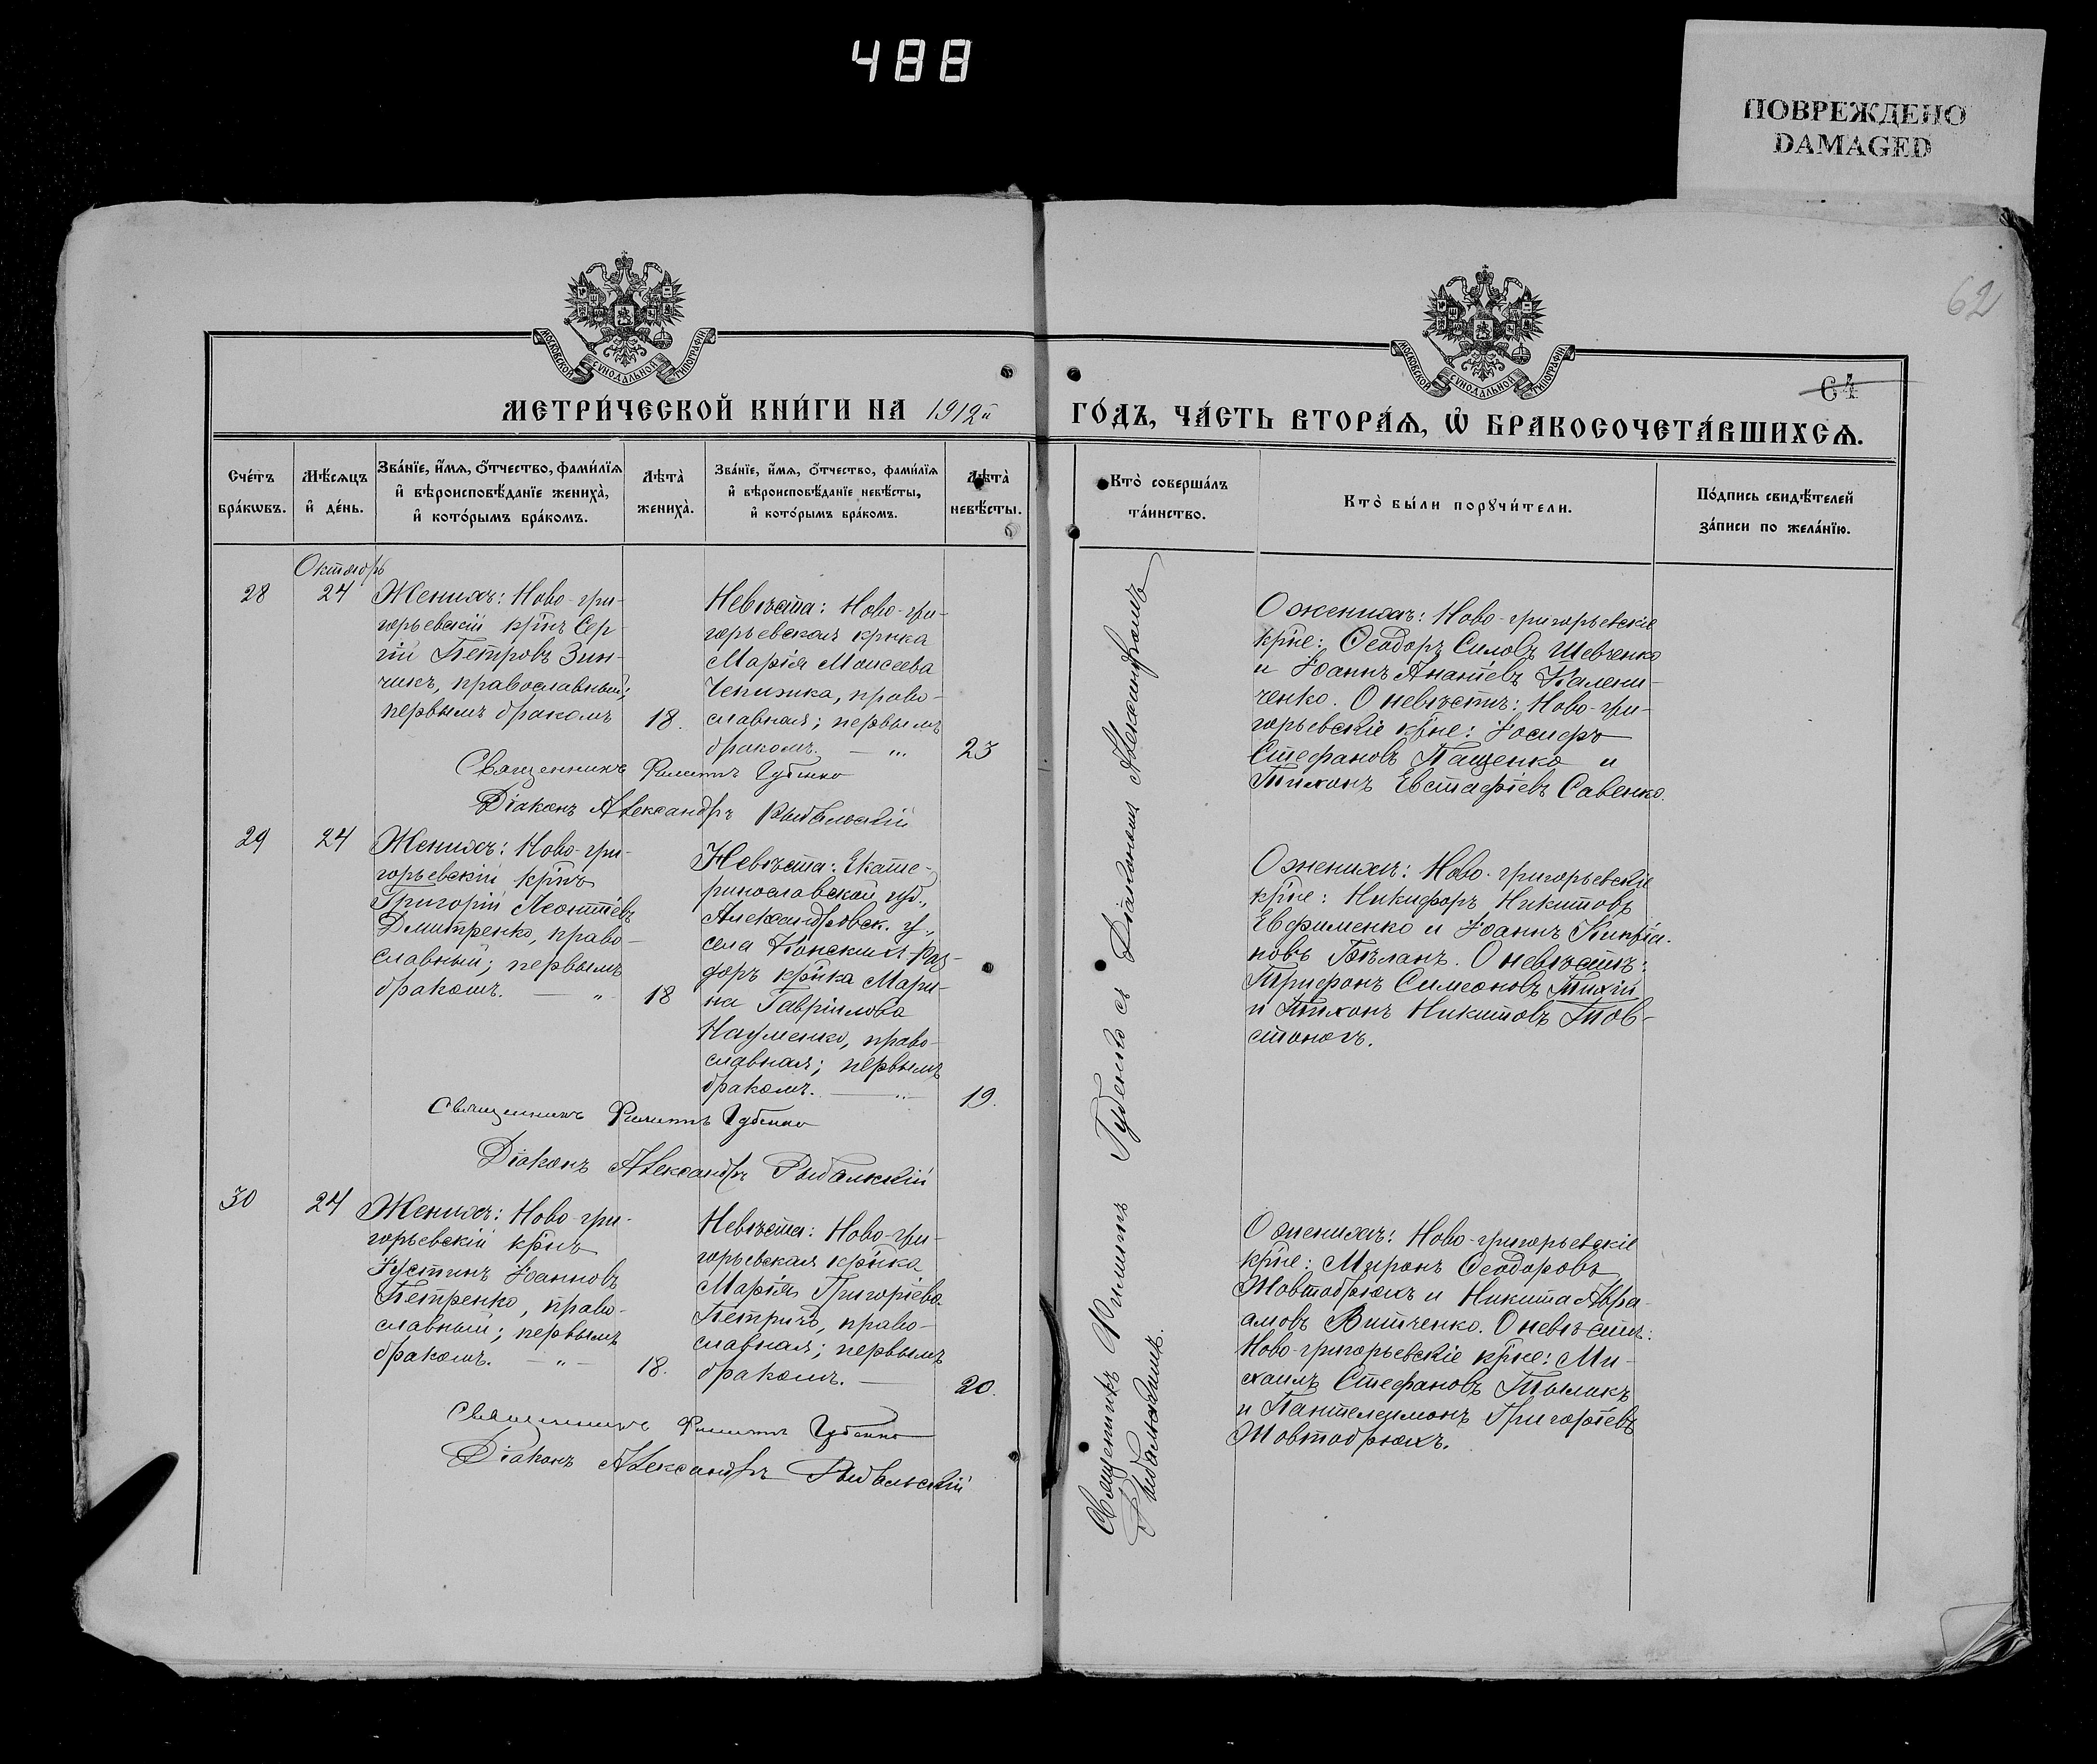 488
ПОВРЕЖДЕНО
DAMAGED
62
64
МОСКОВСКОЙ СѴНОДАЛЬНОЙ ТИПОГРАФІИ
МОСКОВСКОЙ СѴНОДАЛЬНОЙ ТИПОГРАФІИ
МЕТРИ́ЧЕСКОЙ КНИ́ГИ НА 1912й
ГО́ДЪ, ЧА́СТЬ ВТОРА́Ѧ, Ѡ҆ БРАКОСОЧЕТА́ВШИХСѦ.
Сче́тъ
бра́кѡвъ.
Мѣ́сѧцъ
и҆ де́нь.
Зва́нїе, и҆́мѧ, ѻ҆́тчество, фами́лїѧ
и҆ вѣроисповѣ́данїе жениха̀,
и҆ кото́рымъ бра́комъ.
Лѣта̀
жениха̀.
Зва́нїе, и҆́мѧ, ѻ҆́тчество, фами́лїѧ
и҆ вѣроисповѣ́данїе невѣ́сты,
и҆ кото́рымъ бра́комъ.
Лѣта̀
невѣ́сты.
Кто̀ соверша́лъ
та́инство.
Кто̀ бы́ли порꙋчи́тели.
По́дпись свидѣ́телей
за́писи по жела́нїю.
Октябрь
28
24
Женихъ: Ново-гри-
горьевскій кр̃нъ Сер-
гій Петровъ Зин-
чикъ, православный;
первымъ бракомъ
18.
Невѣста: Ново-гри-
горьевская крнка
Марія Моисеева
Чепижка, право-
славная; первымъ
бракомъ. — „
23
Священникъ Филиппъ Губенко
Діаконъ Александръ Рыбальскій
О женихѣ: Ново-григорьевскіе
кр̃не: Ѳеодоръ Силовъ Шевченко
и Іоаннъ Ананіевъ Калени-
ченко. О невѣстѣ: Ново-гри-
горьевскіе кр̃не: Іосифъ
Стефановъ Пащенко и
Тихонъ Евстафіевъ Савенко.
29
24
Женихъ: Ново-гри-
горьевскій кр̃нъ
Григорій Леонтіевъ
Дмитренко, право-
славный; первымъ
бракомъ. — „
18
Невѣста: Екате-
ринославской губ.,
Александровск. у.,
села Конскихъ-Раз-
доръ кр̃нка Мари-
на Гавріилова
Науменко, право-
славная; первымъ
бракомъ. — „
19.
Священникъ Филиппъ Губенко
Діаконъ Александръ Рыбальскій
О женихѣ: Ново-григорьевскіе
кр̃не: Никифоръ Никитовъ
Евфименко и Іоаннъ Кипріа-
новъ Бѣланъ. О невѣстѣ:
Трифонъ Симеоновъ Тихій
и Тихонъ Никитовъ Тов-
стоногъ.
30
24
Женихъ: Ново-гри-
горьевскій кр̃нъ
Іустинъ Іоанновъ
Петренко, право-
славный; первымъ
бракомъ. — „ —
18.
Невѣста: Ново-гри-
горьевская кр̃нка
Марія Григоріева
Петричо, право-
славная; первымъ
бракомъ. —
20.
Священникъ Филиппъ Губенко
Діаконъ Александръ Рыбальскій
О женихѣ: Ново-григорьевскіе
кр̃не: Миронъ Ѳеодоровъ
Жовтобрюхъ и Никита Авра-
амовъ Витченко. О невѣстѣ:
Ново-григорьевскіе кр̃не: Ми-
хаилъ Стефановъ
и Пантелеимонъ Григоріевъ
Жовтобрюхъ.
Священникъ Филиппъ Губенко съ Діакономъ Александромъ
Рыбальскимъ.